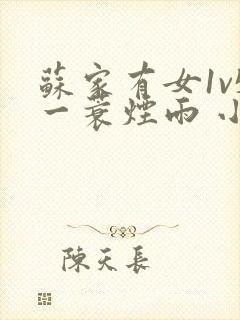 蘇家有女1v
一蓑煙雨 小
陳天長